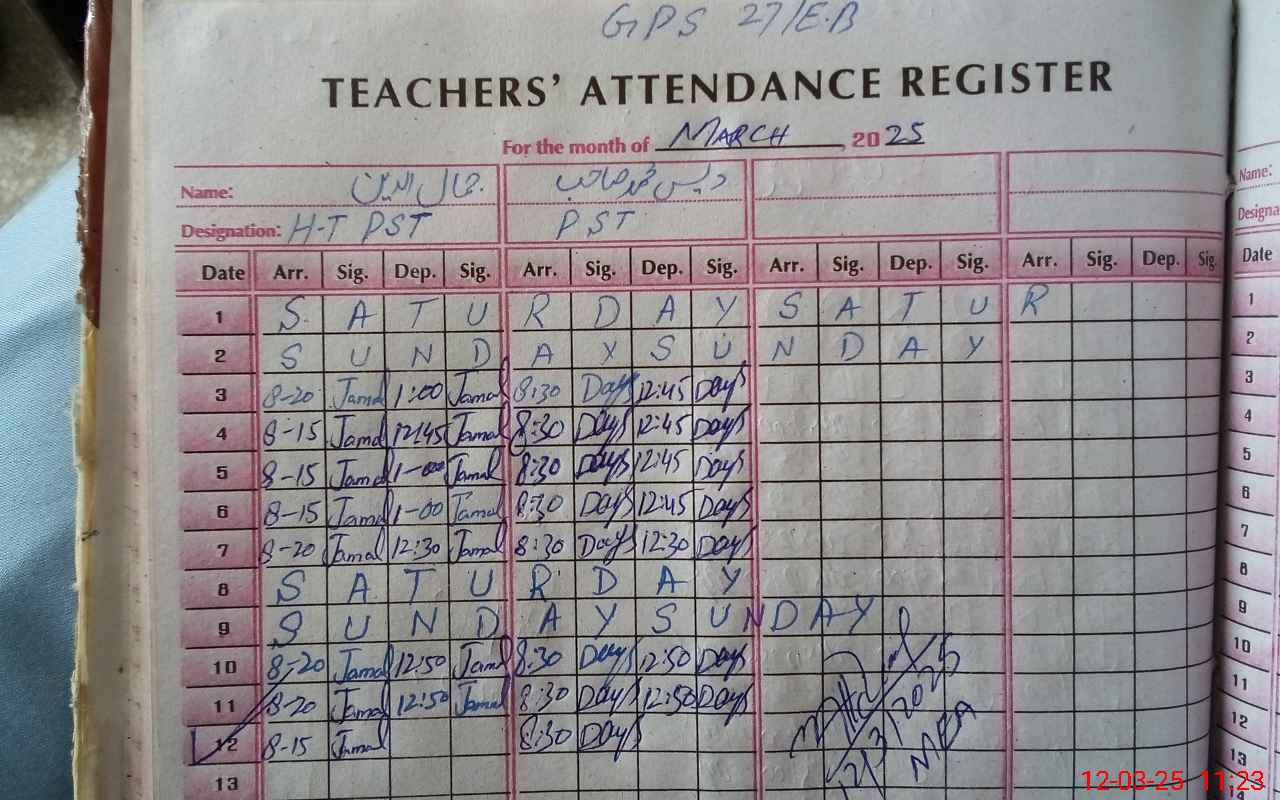 GPS 27/E.B
TEACHERS' ATTENDANCE REGISTER
For the month of MARCH, 2025
Name: جمال الدین
Designation: H-T PST PST
Date Arr. Sig. Dep. Sig. Arr. Sig. Dep. Sig. Arr. Sig. Dep. Sig. Arr. Sig. Dep. Sig.
1 S A T U R D A Y S A T U R
2 S U N D A Y S U N D A Y
3 8-20 Jamal 1:00 Jamal 8:30 Days 12:45 Days
4 8-15 Jamal 12:45 Jamal 8:30 Days 12:45 Days
5 8-15 Jamal 1-00 Jamal 8:30 Days 12:45 Days
6 8-15 Jamal 1-00 Jamal 8:30 Days 12:45 Days
7 8-20 Jamal 12:30 Jamal 8:30 Days 12:30 Days
8 S A T U R D A Y
9 S U N D A Y S U N D A Y
10 8-20 Jamal 12:50 Jamal 8:30 Days 12:50 Days
11 8-20 Jamal 12:50 Jamal 8:30 Days 12:50 Days
12 8-15 Jamal 8:30 Days
13
12/3/2025
MEA
Name:
Designa
Date
1
2
3
4
5
6
7
8
9
10
11
12
13
14
12-03-25 11:23